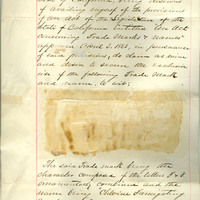 of availing myself of the provisions
of an Act of the Legislature of the
State of California entitled "An Act
concerning Trade Marks & names"
approved April 3, 1863, in pursuance
of said provisions, do claim as mine
and desire to secure the exclusive
use of the following Trade Mark
and name, to wit:
The said Trade mark being the
character composed of the letters
ornamented, combined and the
name being Chlorine Fumigating